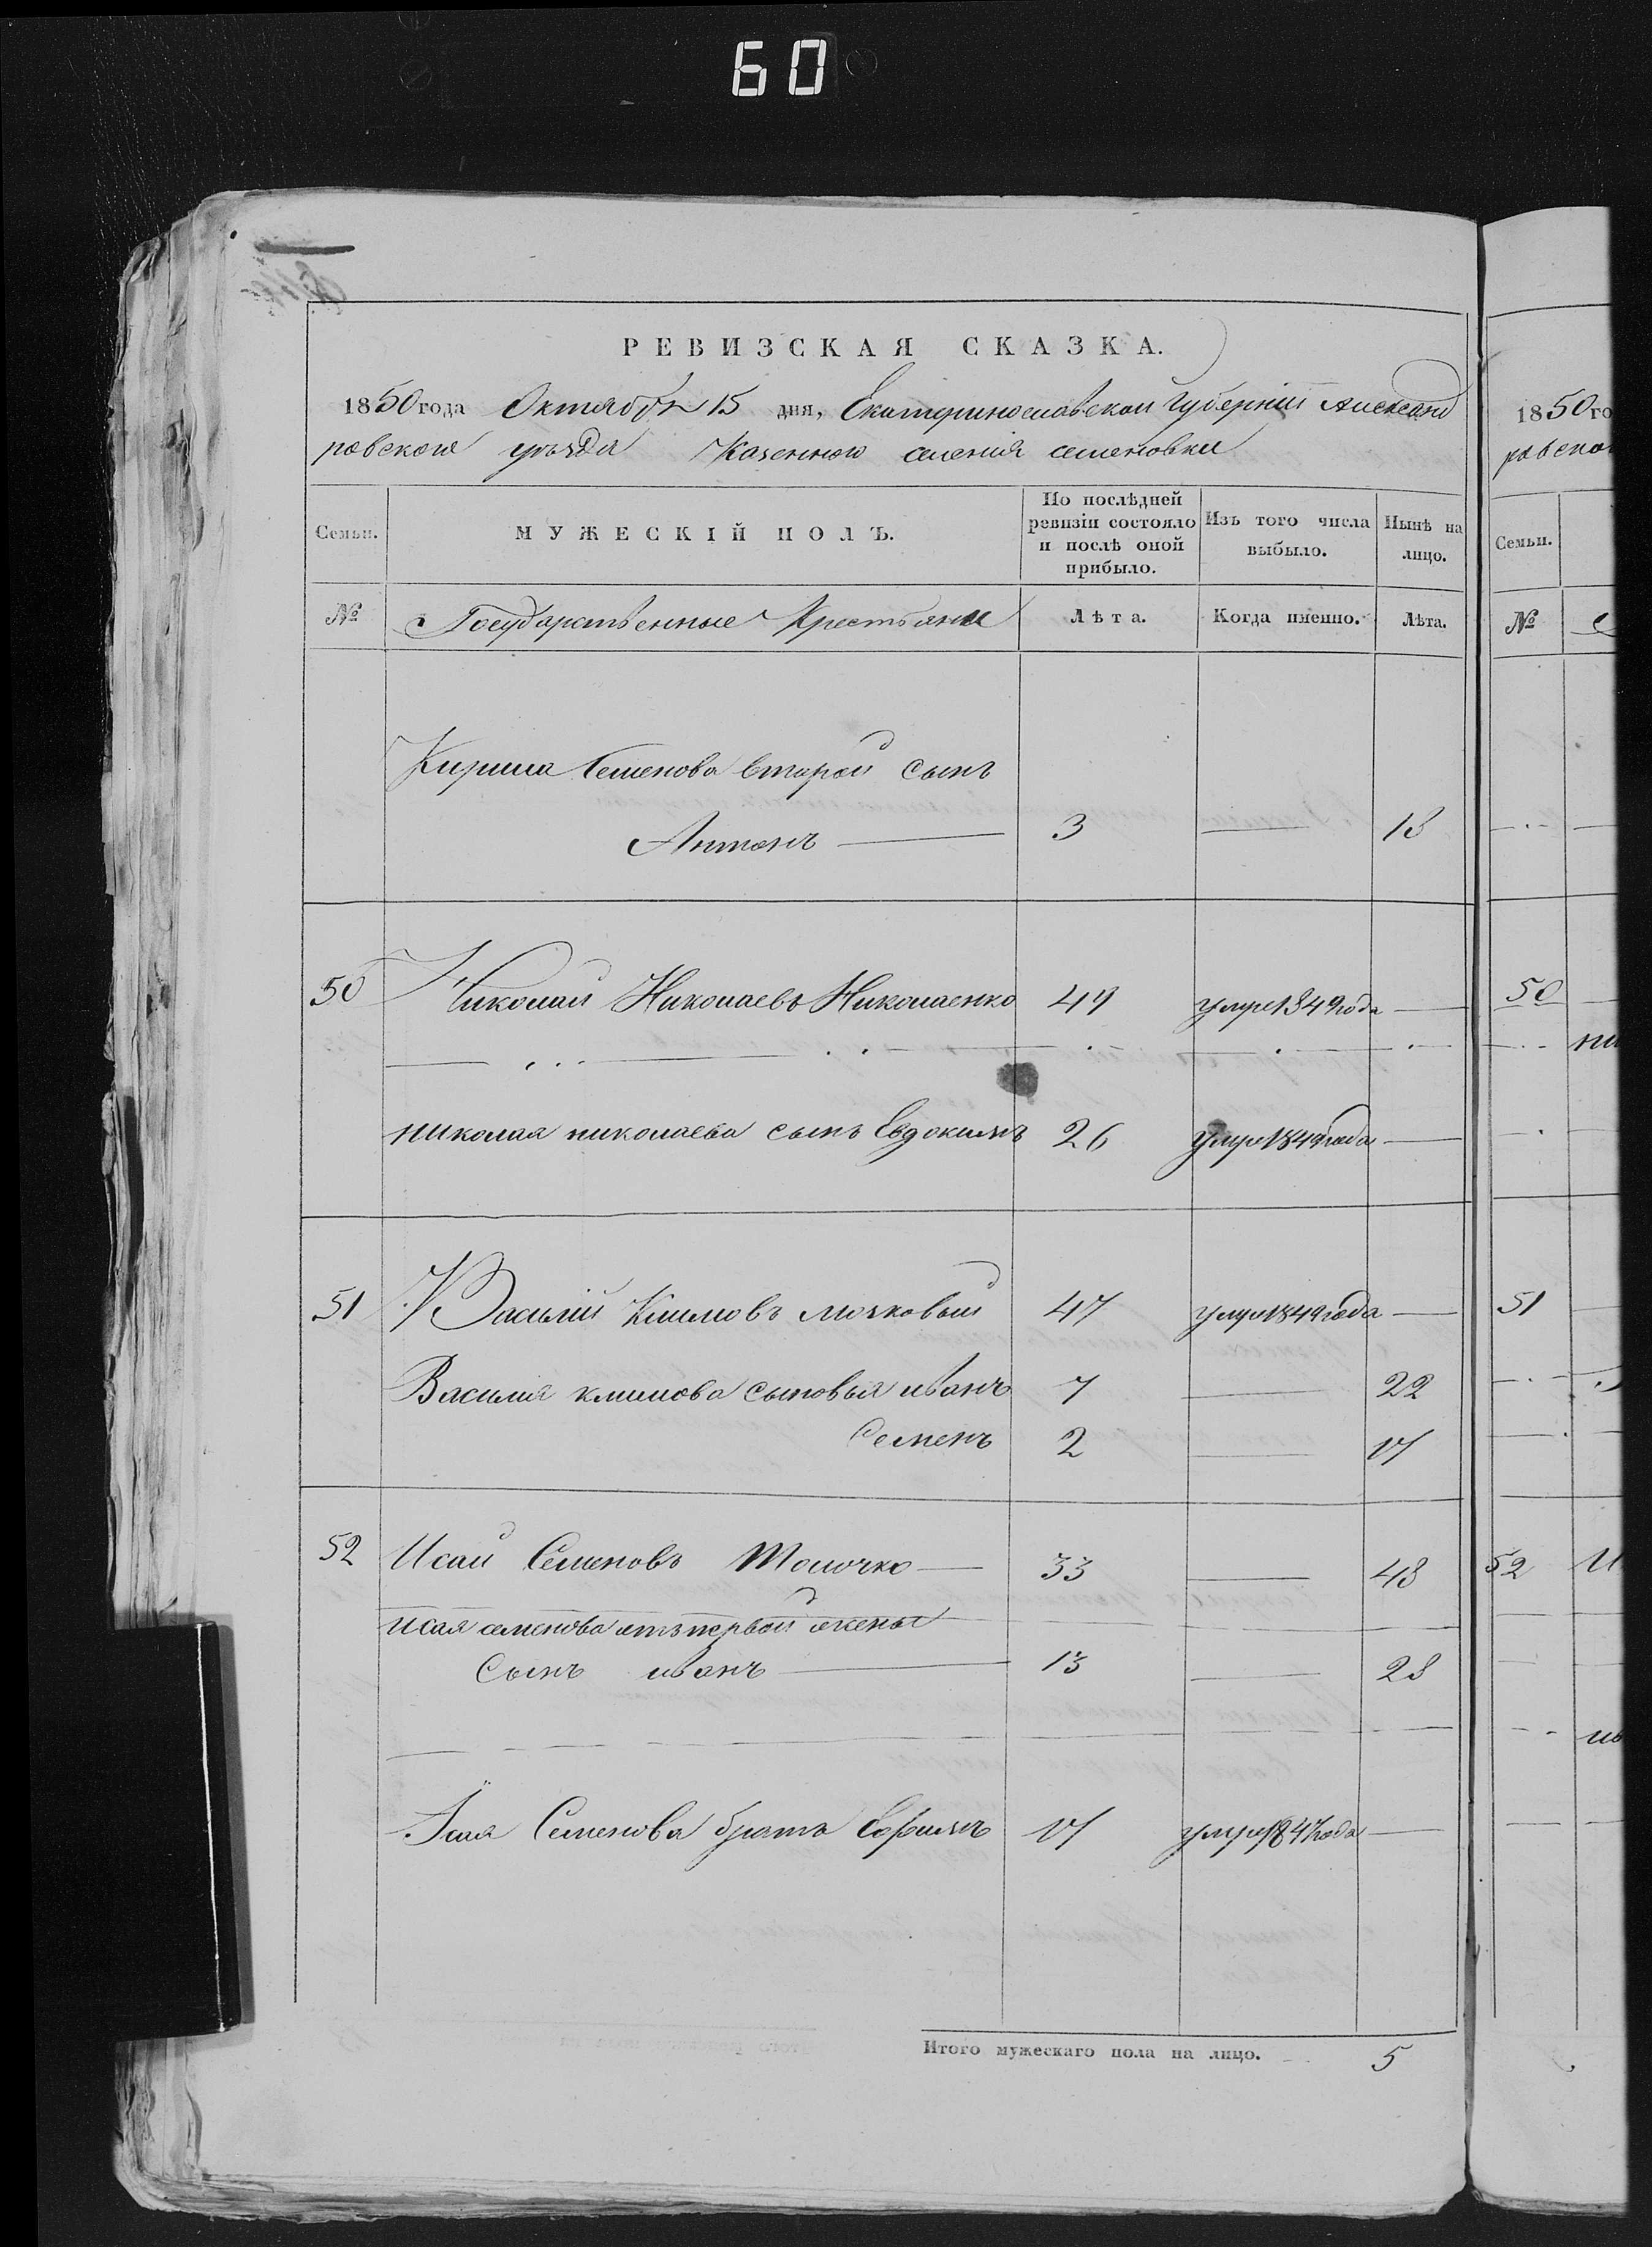 60
РЕВИЗСКАЯ СКАЗКА.
1850 года Октября 15 дня, Екатеринославской Губерніи Александ
ровского уѣзда Казенного селенія семеновки
Семьи.
МУЖЕСКІЙ ПОЛЪ.
По послѣдней ревизіи состояло и послѣ оной прибыло.
Изъ того числа выбыло.
Нынѣ на лицо.
№ Государственные Крестьяне Лѣта. Когда именно. Лѣта.
Кирила Семенова второй сынъ
Антонъ 3 18
50 Николай Николаевъ Николаенко 49 умре 1849 года
николая николаева сынъ Евдокимъ 26 умре 1849 года
51 Василій Климовъ мочковый 47 умре 1849 года
Василия климова сыновья иванъ 7 22
Семенъ 2 17
52 Исай Семеновъ Толочко 33 48
исая семенова отъ первой жены
Сынъ иванъ 13 28
Исая Семенова братъ Ефимъ 17 умре 1847 года
Итого мужескаго пола на лицо. 5
1850 го
ровско
Семьи.
№
50
ни
51
52 И
ив